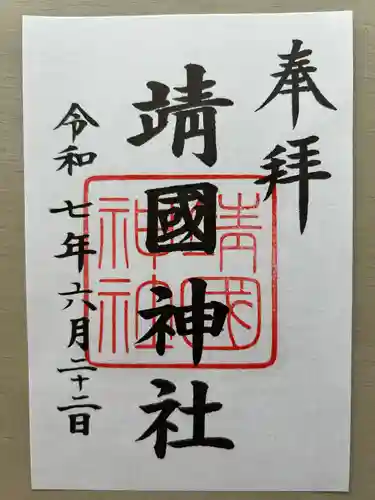 奉拝
靖國神社
靖国神社
令和七年六月二十二日